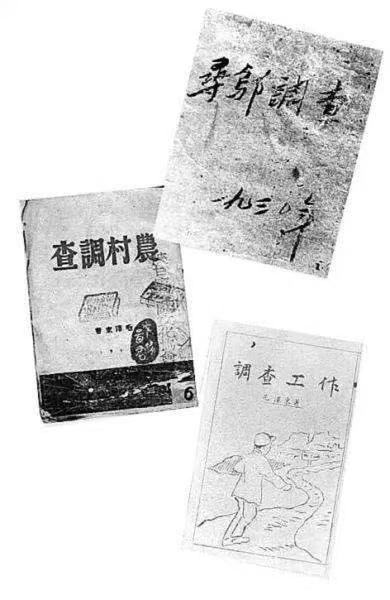 尋鄔調查
一九三〇年
農村調查
毛澤東著
6
調查工作
毛澤東著